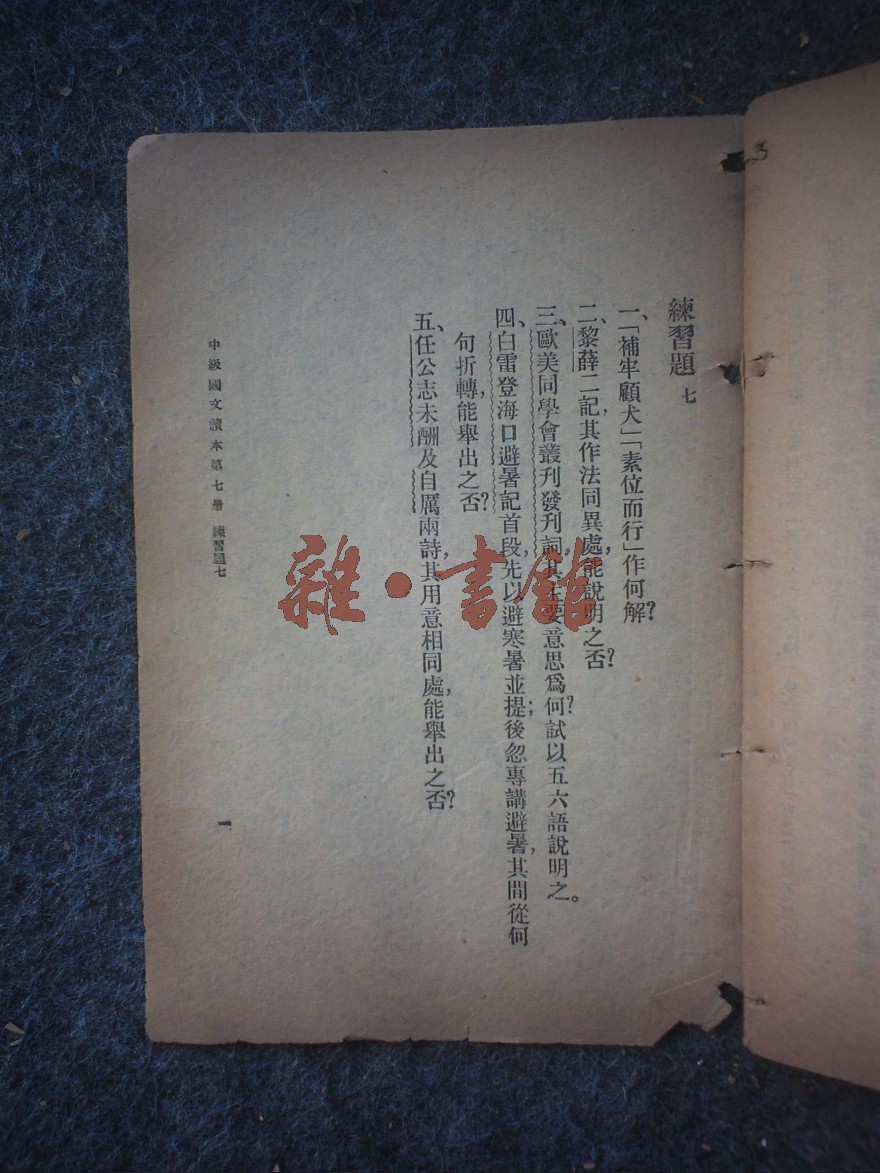 練習題 七
一、「補牢顧犬」「素位而行」作何解?
二、黎薛二記,其作法同異處,能說明之否?
三、歐美同學會叢刊發刊詞,其主要意思爲何?試以五六語說明之。
四、白雷登海口避暑記首段,先以避寒暑並提;後忽專講避暑,其間從何
句折轉,能舉出之否?
五、任公志未酬及自厲兩詩,其用意相同處,能舉出之否?
中級國文讀本第七册 練習題七
一
雜·書館